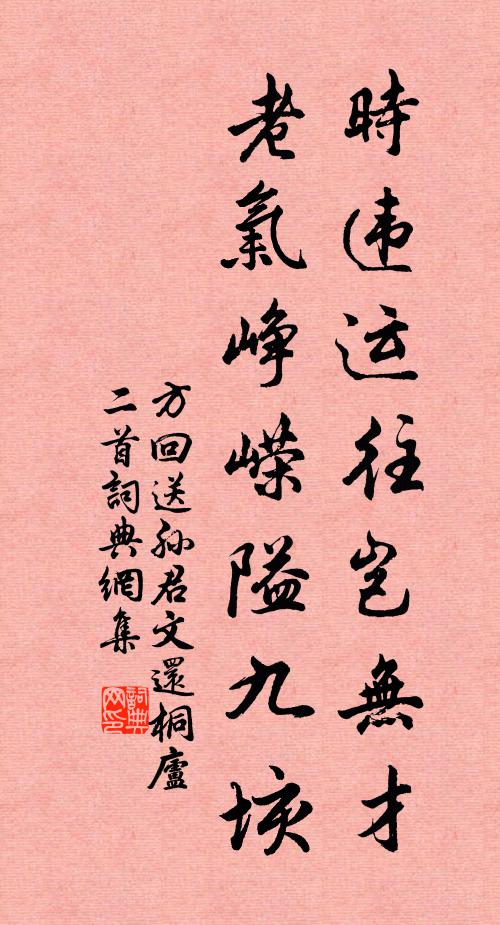 時违运往岂無才
老氣峥嵘隘九垓
方回送孙君文還桐廬
二首詞典網集
詞典
网印